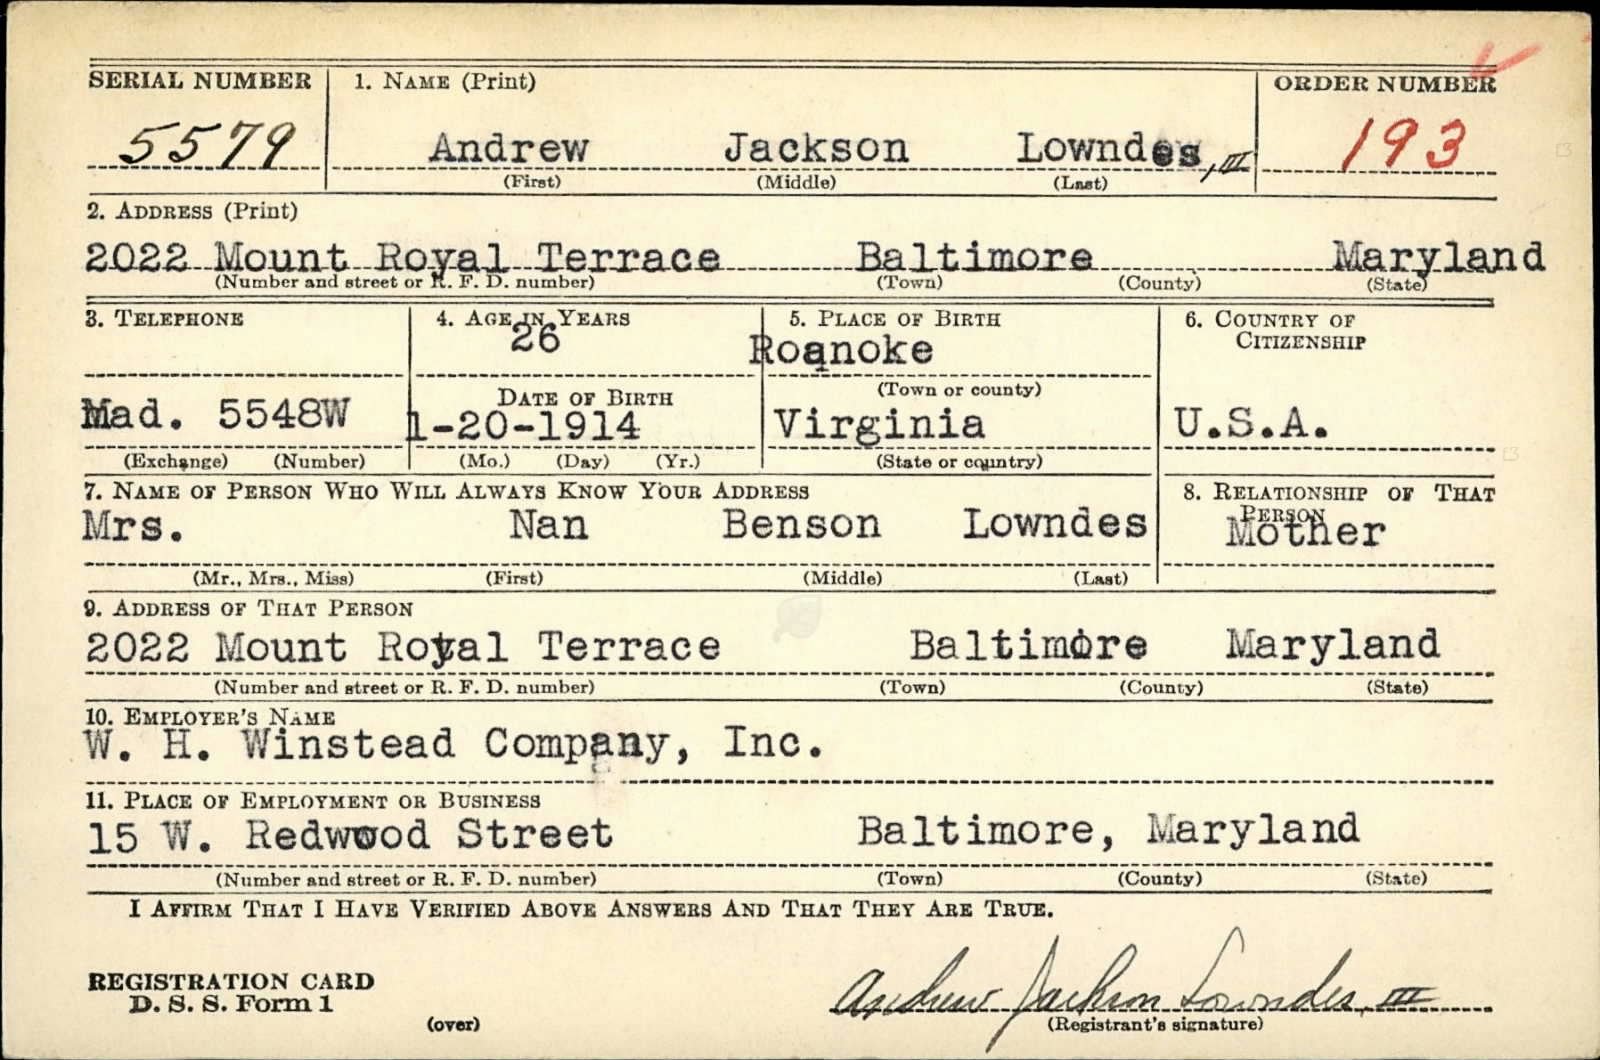 SERIAL NUMBER 1. NAME (Print) ORDER NUMBER
5579 Andrew Jackson Lowndes, III 193
(First) (Middle) (Last)
2. ADDRESS (Print)
2022 Mount Royal Terrace Baltimore Maryland
(Number and street or R. F. D. number) (Town) (County) (State)
3. TELEPHONE 4. AGE IN YEARS 5. PLACE OF BIRTH 6. COUNTRY OF
CITIZENSHIP
26 Roanoke
(Town or county)
DATE OF BIRTH
Mad. 5548W 1-20-1914 Virginia U.S.A.
(Exchange) (Number) (Mo.) (Day) (Yr.) (State or country)
7. NAME OF PERSON WHO WILL ALWAYS KNOW YOUR ADDRESS 8. RELATIONSHIP OF THAT
PERSON
Mrs. Nan Benson Lowndes Mother
(Mr., Mrs., Miss) (First) (Middle) (Last)
9. ADDRESS OF THAT PERSON
2022 Mount Royal Terrace Baltimore Maryland
(Number and street or R. F. D. number) (Town) (County) (State)
10. EMPLOYER'S NAME
W. H. Winstead Company, Inc.
11. PLACE OF EMPLOYMENT OR BUSINESS
15 W. Redwood Street Baltimore, Maryland
(Number and street or R. F. D. number) (Town) (County) (State)
I AFFIRM THAT I HAVE VERIFIED ABOVE ANSWERS AND THAT THEY ARE TRUE.
REGISTRATION CARD
D. S. S. Form 1 Andrew Jackson Lowndes, III
(over) (Registrant's signature)